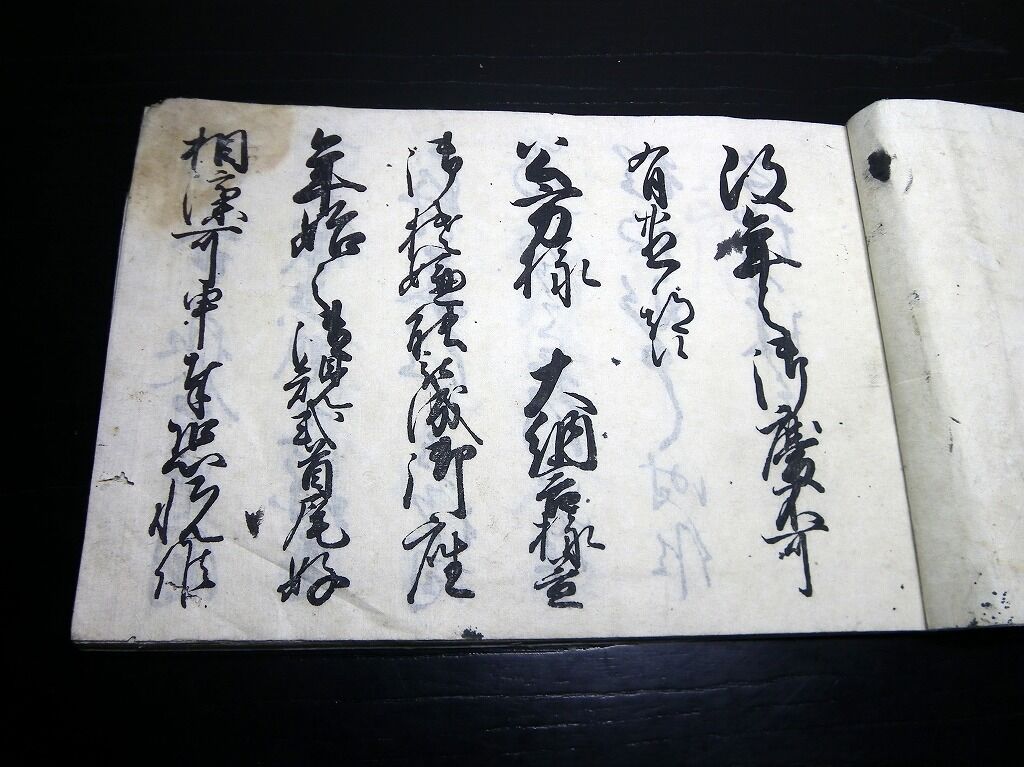 改年之御慶不可
有尽期
公方様 大納言様益
御機嫌能被成御座
年始之御規式首尾好
相済可申奉恐悦候